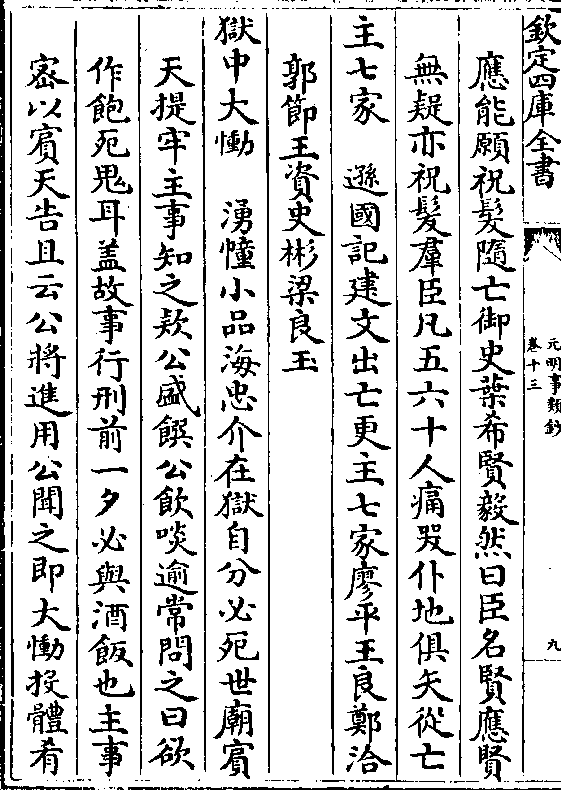 欽定四庫全書
元明事類鈔
卷十三
九
應能願祝髮隨亡御史葉希賢毅然曰臣名賢應賢
無疑亦祝髮羣臣凡五六十人痛哭仆地俱矢從亡
主七家　遜國記建文出亡更主七家廖平王良鄭洽
郭節王資史彬梁良玉
獄中大慟　湧幢小品海忠介在獄自分必死世廟賓
天提牢主事知之款公盛饌公飲啖逾常問之曰欲
作飽死鬼耳盖故事行刑前一夕必與酒飯也主事
宻以賓天告且云公將進用公聞之即大慟投體肴